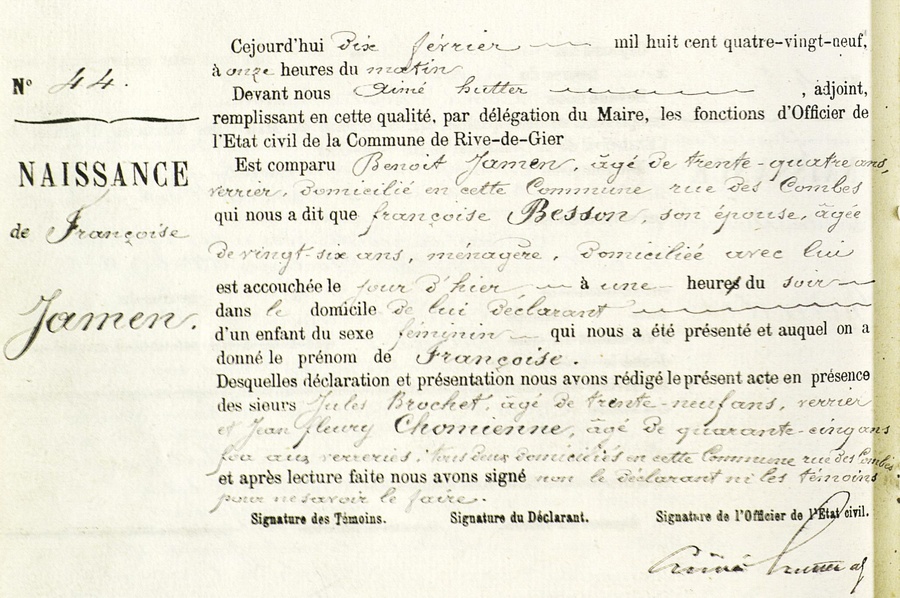 Cejourd'hui dix février mil huit cent quatre-vingt-neuf,
à onze heures du matin
N° 44.
Devant nous Aimé hutter, adjoint,
remplissant en cette qualité, par délégation du Maire, les fonctions d'Officier de
l'Etat civil de la Commune de Rive-de-Gier
NAISSANCE
Est comparu Benoit Jamen, âgé de trente-quatre ans,
verrier, domicilié en cette Commune rue des Combes
qui nous a dit que françoise Besson, son épouse, âgée
de Françoise
de vingt six ans, ménagère, domiciliée avec lui
est accouchée le jour d'hier à une heure du soir
Jamen.
dans le domicile de lui déclarant
d'un enfant du sexe féminin qui nous a été présenté et auquel on a
donné le prénom de Françoise.
Desquelles déclaration et présentation nous avons rédigé le présent acte en présence
des sieurs Jules Brochet, âgé de trente-neuf ans, verrier
et Jean fleury Chomienne, âgé de quarante-cinq ans
aux verreries, tous deux domiciliés en cette Commune rue des Combes
et après lecture faite nous avons signé non le déclarant ni les témoins
pour ne savoir le faire.
Signature des Témoins. Signature du Déclarant. Signature de l'Officier de l'Etat civil.
Aimé hutter adj